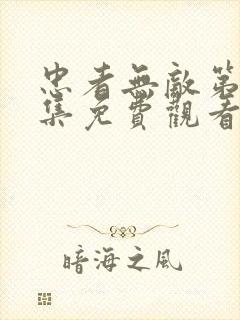 忠者無敵第
集免費觀看
暗海之風